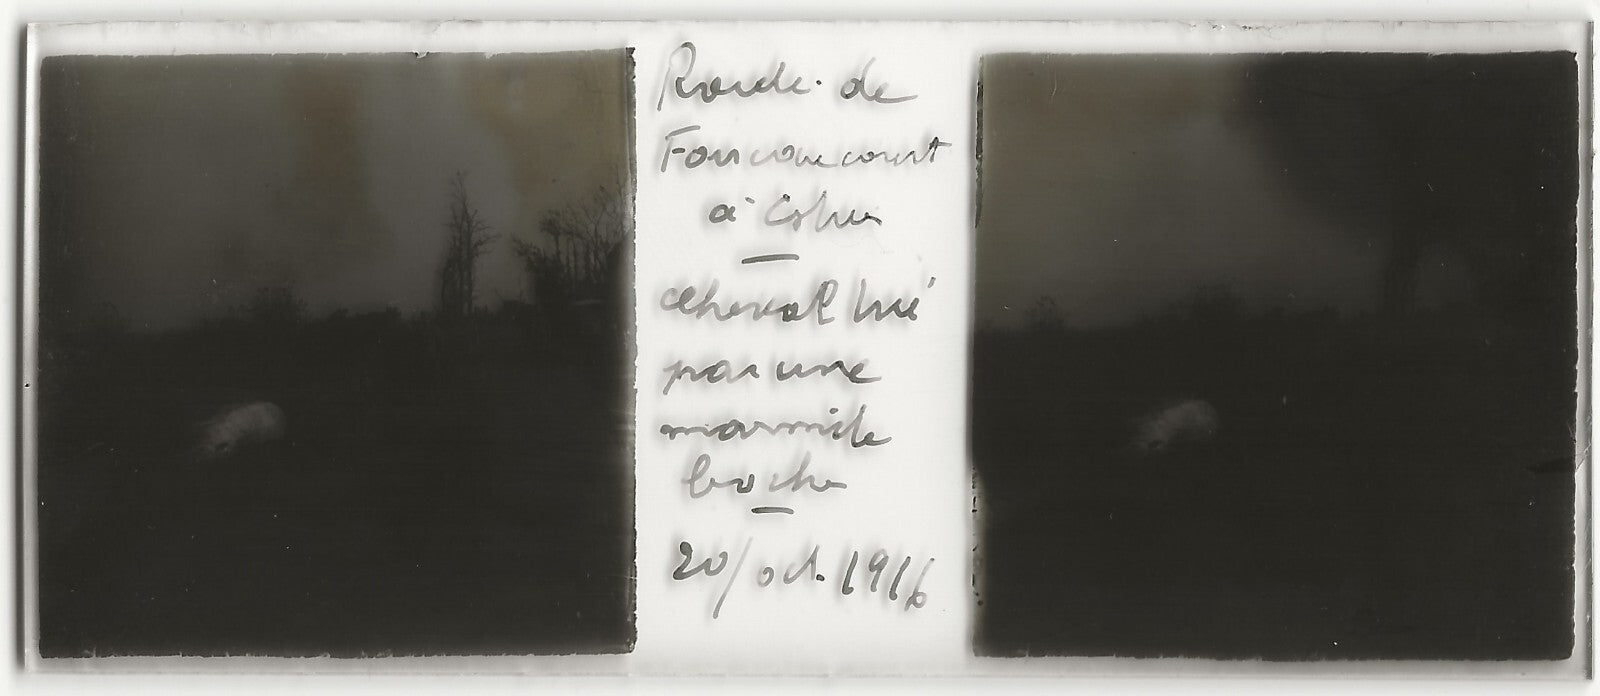 Route de
Foucaucourt
à Estrées
cheval tué
par une
marmite
boche
20/oct. 1916